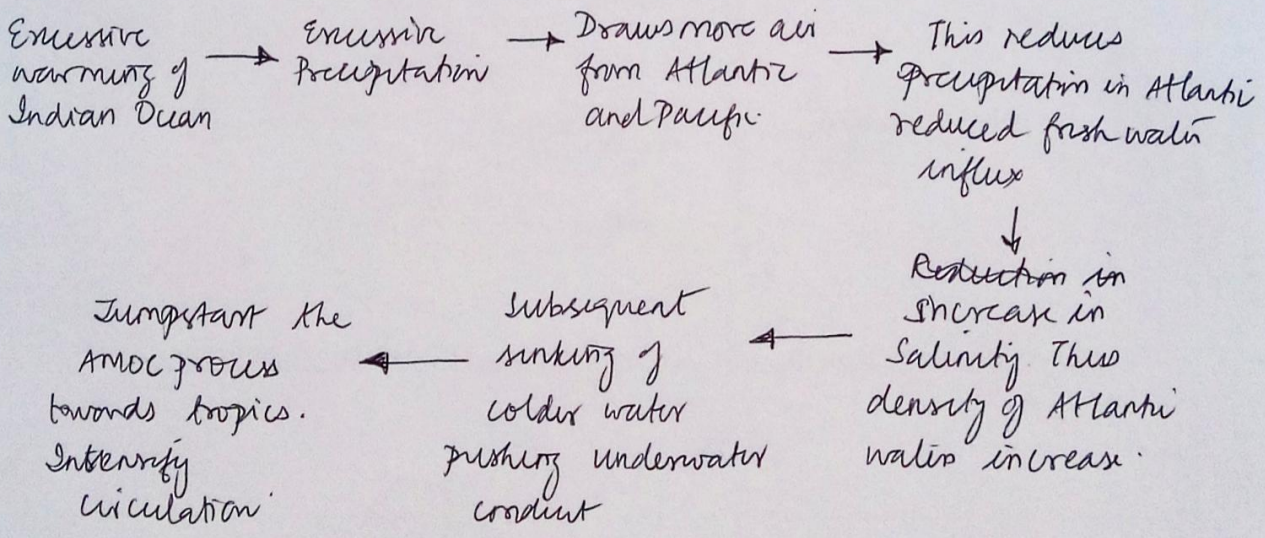 Excessive
warming of
Indian Ocean
Excessive
Precipitation
Draws more air
from Atlantic
and Pacific.
This reduces
precipitation in Atlantic
reduced fresh water
influx
Reduction in
Increase in
Salinity. Thus
density of Atlantic
waters increase.
Subsequent
sinking of
colder water
pushing underwater
conduit
Jumpstart the
AMOC process
towards tropics.
Intensify
circulation